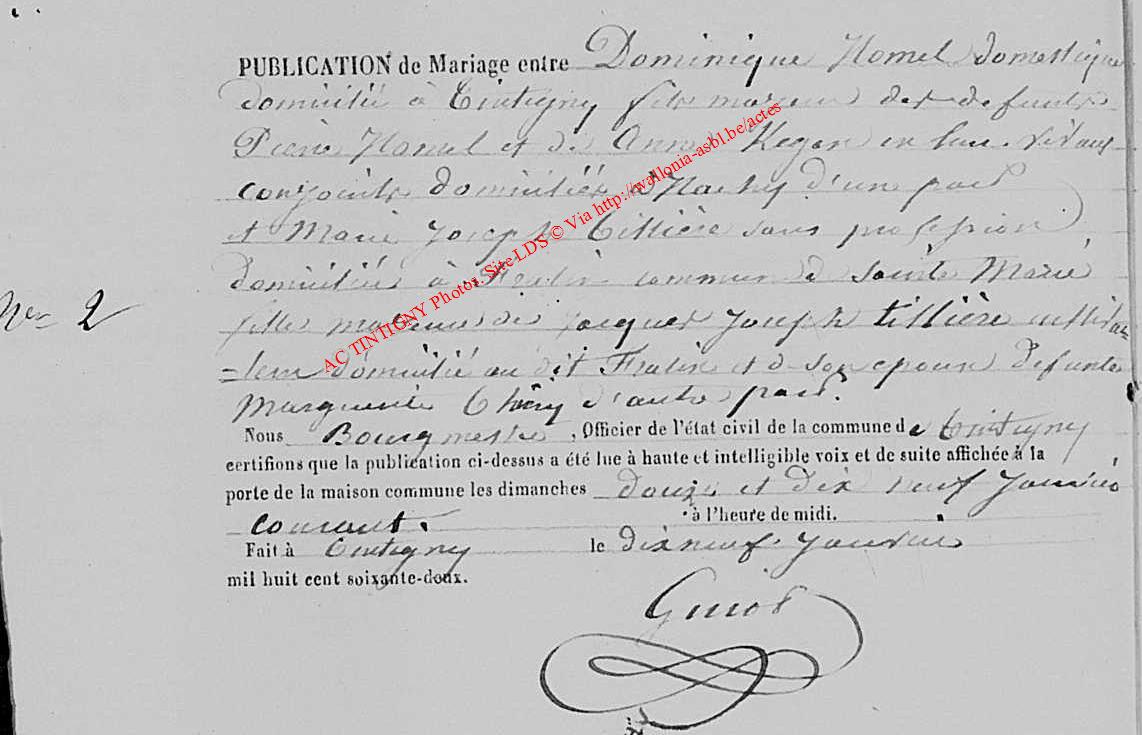 PUBLICATION de Mariage entre Dominique Homel domestique
domicilié à Tintigny fils majeur des défunts
Pierre Homel et de Anne Kegen en leur vivant
conjoints domiciliés à Hachy d'une part
et Marie Joseph Tillière sans profession
domiciliée à Fratin commune de Sainte Marie
N° 2
fille majeure de Jacques Joseph Tillière cultiva=
=teur domicilié au dit Fratin et de son epouse defunte
Marguerite Thiry d'autre part.
Nous Bourgmestre, Officier de l'état civil de la commune de Tintigny
certifions que la publication ci-dessus a été lue à haute et intelligible voix et de suite affichée à la
porte de la maison commune les dimanches douze et dix neuf Janvier
courant. à l'heure de midi.
Fait à Tintigny le dix neuf Janvier
mil huit cent soixante-deux.
AC TINTIGNY Photos. Site LDS © Via http://wallonia-asbl.be/actes